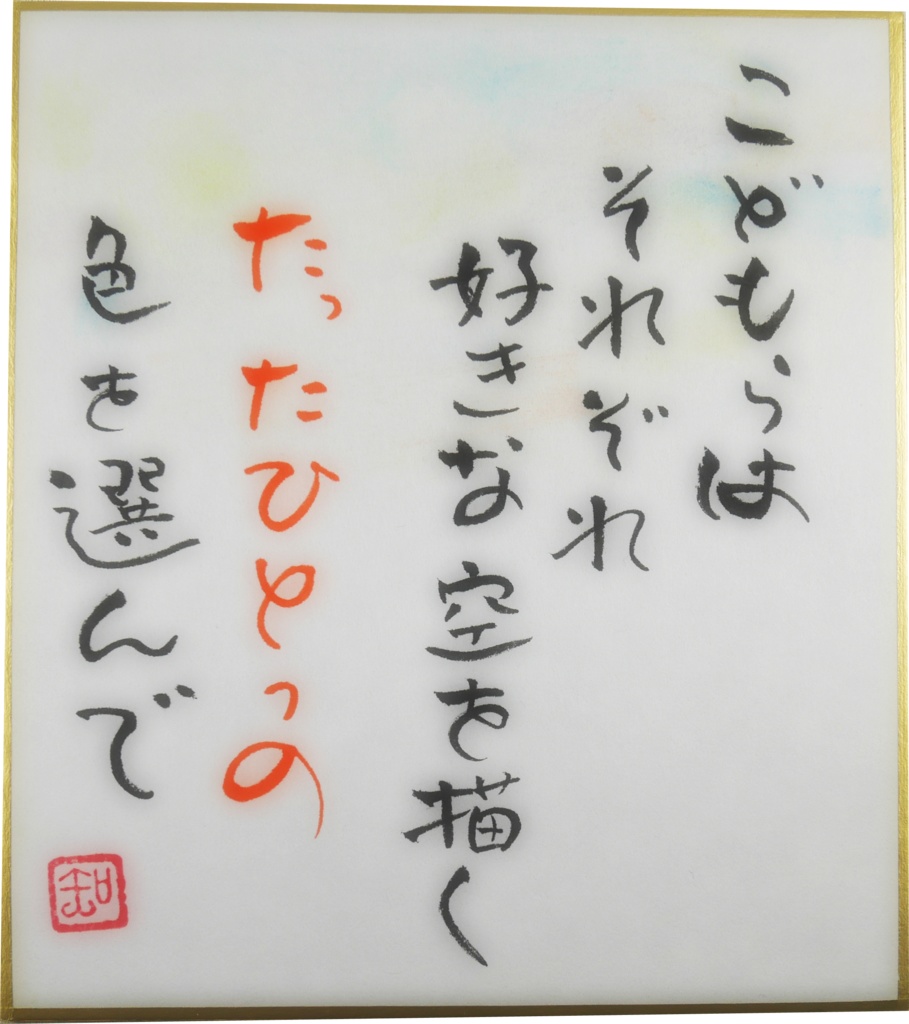 こどもらは
それぞれ
好きな空を描く
たったひとつの
色を選んで